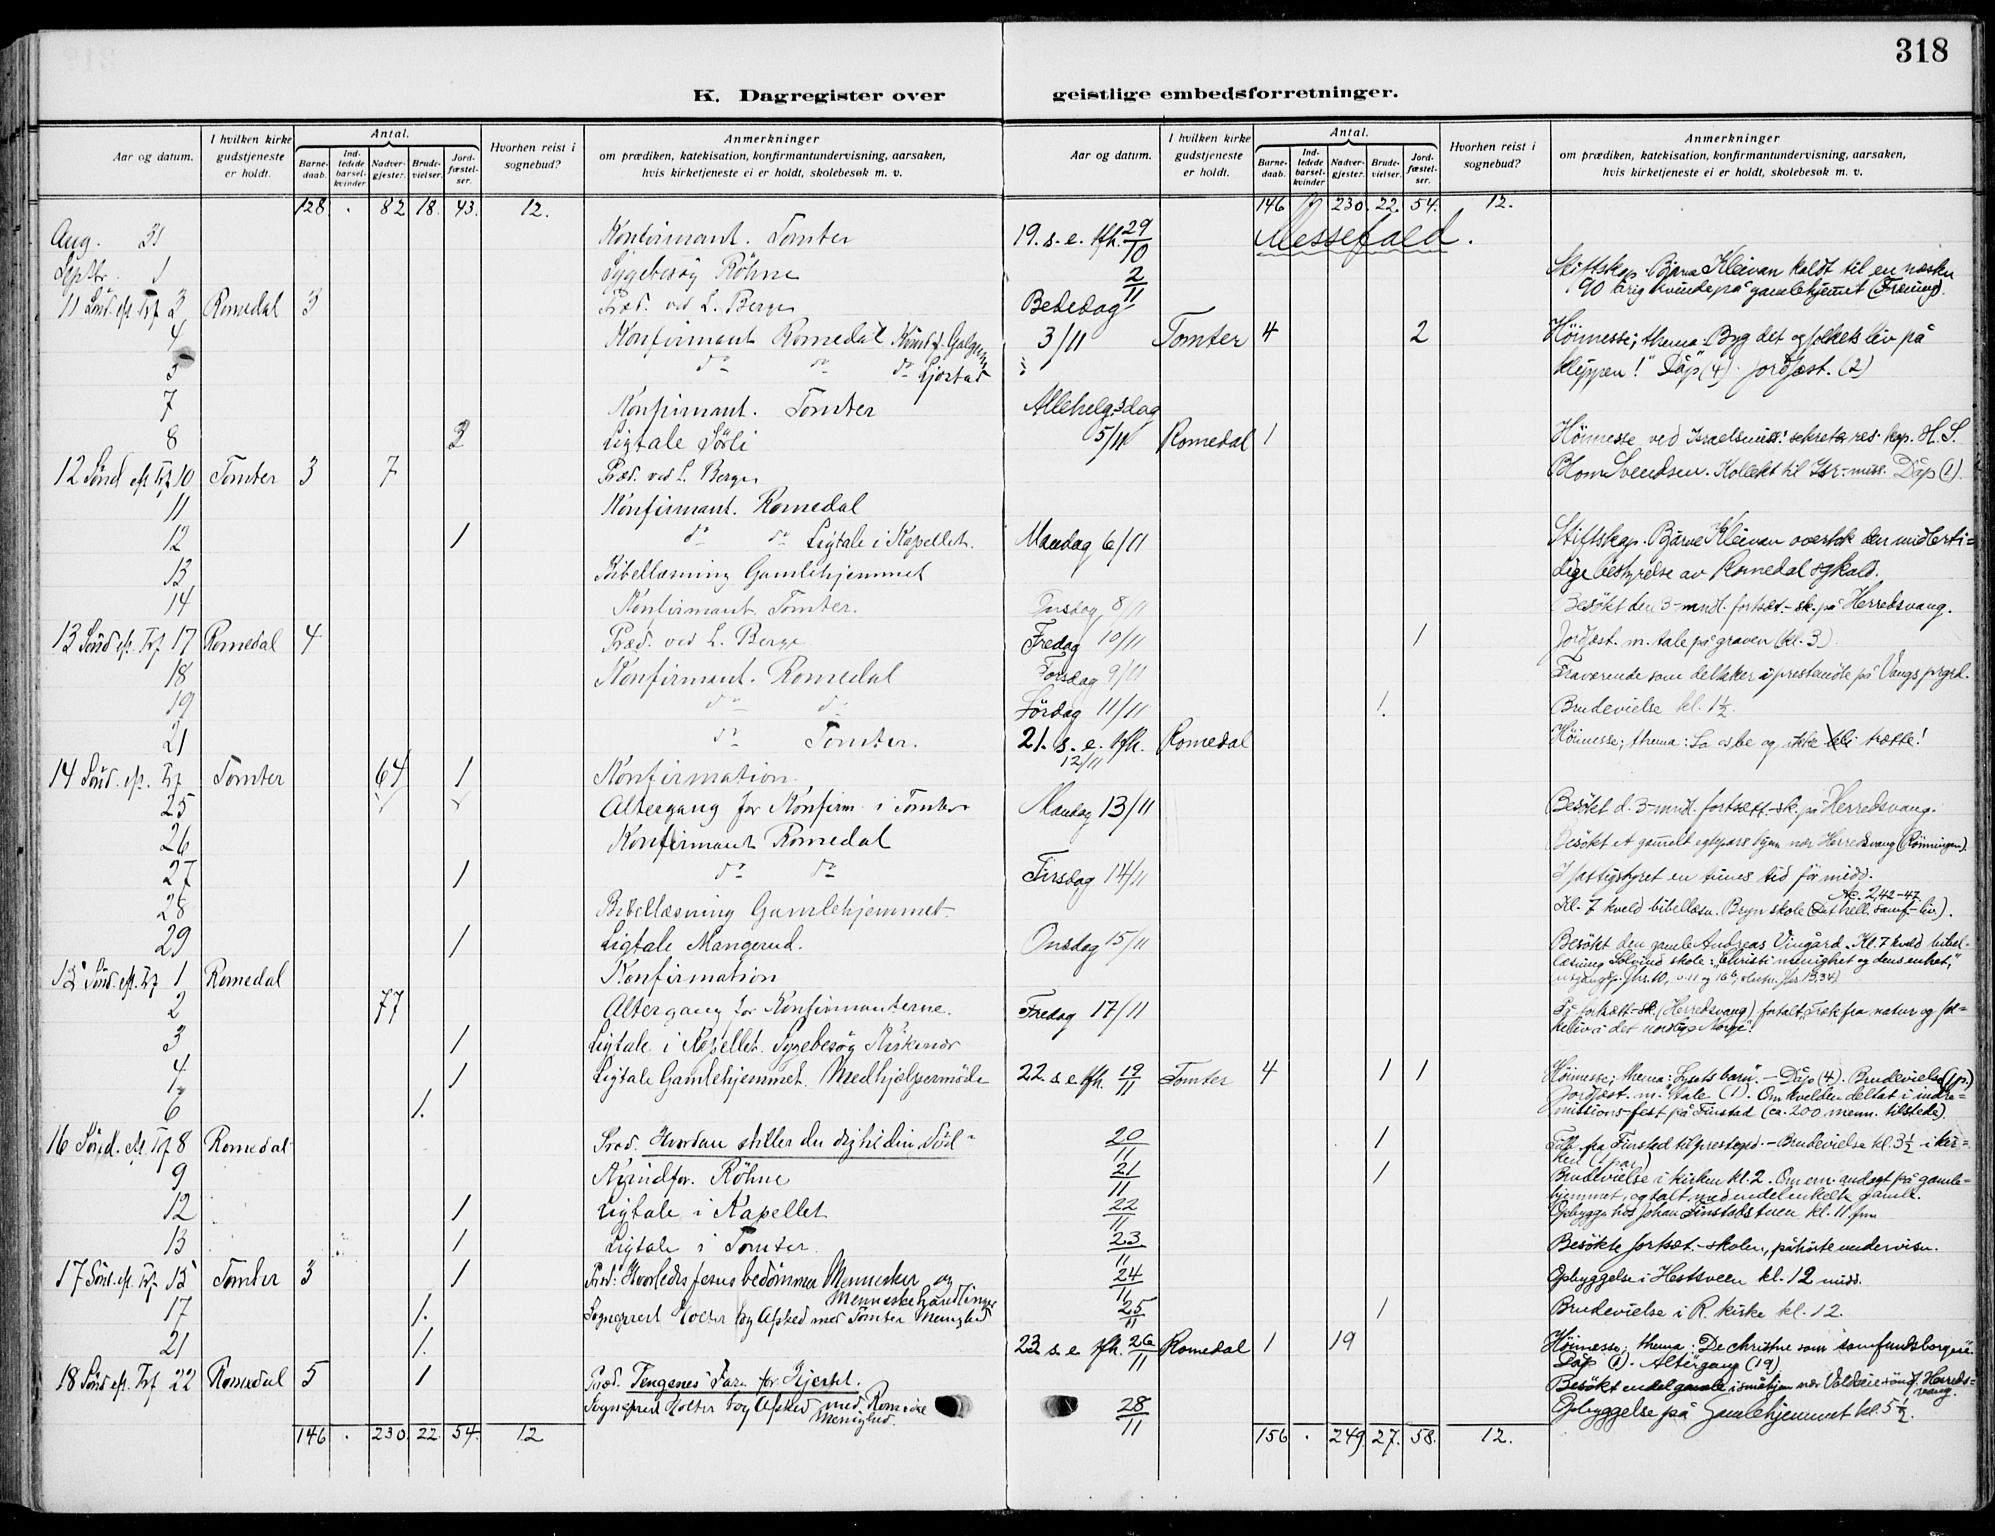 318
K. Dagregister over
Aar og datum. | I hvilken kirke gudstjeneste er holdt. | Antal. Barnedaab. | Indledede barselkvinder | Nadvergjester. | Brudevielser. | Jordfæstelser. | Hvorhen reist i sognebud? | Anmerkninger om prædiken, katekisation, konfirmantundervisning, aarsaken, hvis kirketjeneste ei er holdt, skolebesøk m. v.
128 . 82 18. 43. 12.
Aug. 31 Konfirmant. Tomter
Septbr. 1 Sygebesøg Röhne
11 Sönd. eft. Trf 3 Romedal 3 Præd. ved L. Berge
4 Konfirmant Romedal
5 do do do Ljøstad
7 Konfirmant. Tomter
8 2 Ligtale Sörli
12 Sönd eft Trf 10 Tomter 3 7 Præd. ved L. Berge
11 Konfirmant. Romedal
12 1 do do Ligtale i Kapellet.
13 Bibellæsning Gamlehjemmet
14 Konfirmant. Tomter.
13 Sönd eft. Trf 17 Romedal 4 Præd. ved L. Berge
18 Konfirmant. Romedal
19 do do
21 do Tomter.
14 Sönd. eft. Trf Tomter 64 1 Konfirmation.
25 Altergang for Konfirm. i Tomter
26 Konfirmant Romedal
27 1 do do
28 Bibellæsning Gamlehjemmet
29 1 Ligtale Mangerud.
15 Sönd. eft. Trf 1 Romedal Konfirmation
2 77 Altergang for Konfirmanterne.
3 1 Ligtale i Kapellet. Sygebesøg Kirkenær
4 1 Ligtale Gamlehjemmet. Medhjælpermöde
6 1.
16 Sönd. eft. Trf 8 Romedal Præd. Hvordan stiller du dig til din Sjæl
9 Röhne
12 1 Ligtale i Kapellet
13 1 Ligtale i Tomter.
17 Sönd. eft. Trf. 15 Tomter 3 1 Præd: Hvorledes Jesus bedömmer Mennesker og Menneskehandlinger
17 1. Sogneprest Holter tog Afsked med Tomter Menighed
21 1.
18 Sönd eft. Trf 22 Romedal 5 1 Præd. Pengenes Fare for Hjertet.
Sogneprest Holter tog Afsked med Romedal Menighed.
146 . 230. 22. 54. 12
geistlige embedsforretninger.
Aar og datum. | I hvilken kirke gudstjeneste er holdt. | Antal. Barnedaab. | Indledede barselkvinder | Nadvergjester. | Brudevielser. | Jordfæstelser. | Hvorhen reist i sognebud? | Anmerkninger om prædiken, katekisation, konfirmantundervisning, aarsaken, hvis kirketjeneste ei er holdt, skolebesøk m. v.
146 230. 22. 54. 12.
19. s. e. tfh. 29/10 Messefald.
2/11 Stiftskap. Bjarne Kleivan kaldt til en næsten
Bededag 90 årig kvinde på gamlehjemmet
3/11 Tomter 4 2 Höimesse; thema: Byg det og folkets liv på
klippen! Dåp (4). Jordfæst. (2)
Allehelgsdag
5/11 Romedal 1 Höimesse ved Israelsmiss. sekretær res. kap. H. S.
Blom Svendsen. Kollekt til Isr-miss. Dåp (1).
Mandag 6/11 Stiftskap. Bjarne Kleivan overtok den midlerti-
dige bestyrelse av Romedal sgkald.
Onsdag 8/11 Besökt den 3-mndl. fortsæt.-sk. på Herredsvang.
Fredag 10/11 1 Jordfæst. m. tale på graven (kl. 3).
Torsdag 9/11 Fraværende som deltaker i prestemöte på Vangs prgrd.
Lördag 11/11 1. Brudevielse kl. 1½.
21. s. e. tfh. 12/11 Romedal Höimesse; thema: La os be og ikke bli trætte!
Mandag 13/11 Besökt d. 3-mndl. fortsett.-sk. på Herredsvang.
Besökt et gammelt egtepars hjem nær Herredsvang (Rönningen).
Tirsdag 14/11 I fattigstyret en times tid för midd.
Kl. 7 kveld bibellæsn. Bryn skole Ac. 2,42-47
Onsdag 15/11 Besökt den gamle Andreas Vingård. Kl. 7 kveld bibel-
læsning Solvind skole: "Christi menighet og dens enhet,"
Fredag 17/11 På fortsætt-sk. (Herredsvang) fortalt Træk fra natur og fol-
keliv i det nordlige Norge.
22. s. e tfh. 19/11 Tomter 4 1 1 Höimesse; thema: "Lysets barn". - Dåp (4). Brudevielse (1 p.)
Jordfæst. m. tale (1). Om kvelden deltat i indre-
missions-fest på Finstad (ca. 200 menn. tilstede)
20/11 1 Fra Finstad til prestegrd. - Brudevielse kl. 3½ i kir-
ken (1 par)
21/11 1 Brudevielse i kirken kl. 2. Om em. andagt på gamle-
hjemmet, og talt med endel enkelte gamle.
22/11 Opbygge. hos Johan Finstadstuen kl. 11 fm
23/11 Besökte fortsæt-skolen, påhörte undervisn.
24/11 Opbyggelse i Hestsveen kl. 12 midd.
25/11 1 Brudevielse i R. kirke kl. 12.
23. s. e. tfh. 26/11 Romedal 1 19 Höimesse; thema: De christne som samfundsborgere.
Dåp (1). Altergang (19)
Besökt endel gamle i småhjem nær Herredsvang.
28/11 Opbyggelse på Gamlehjemmet kl. 5½.
156 . 249. 27. 58. 12.